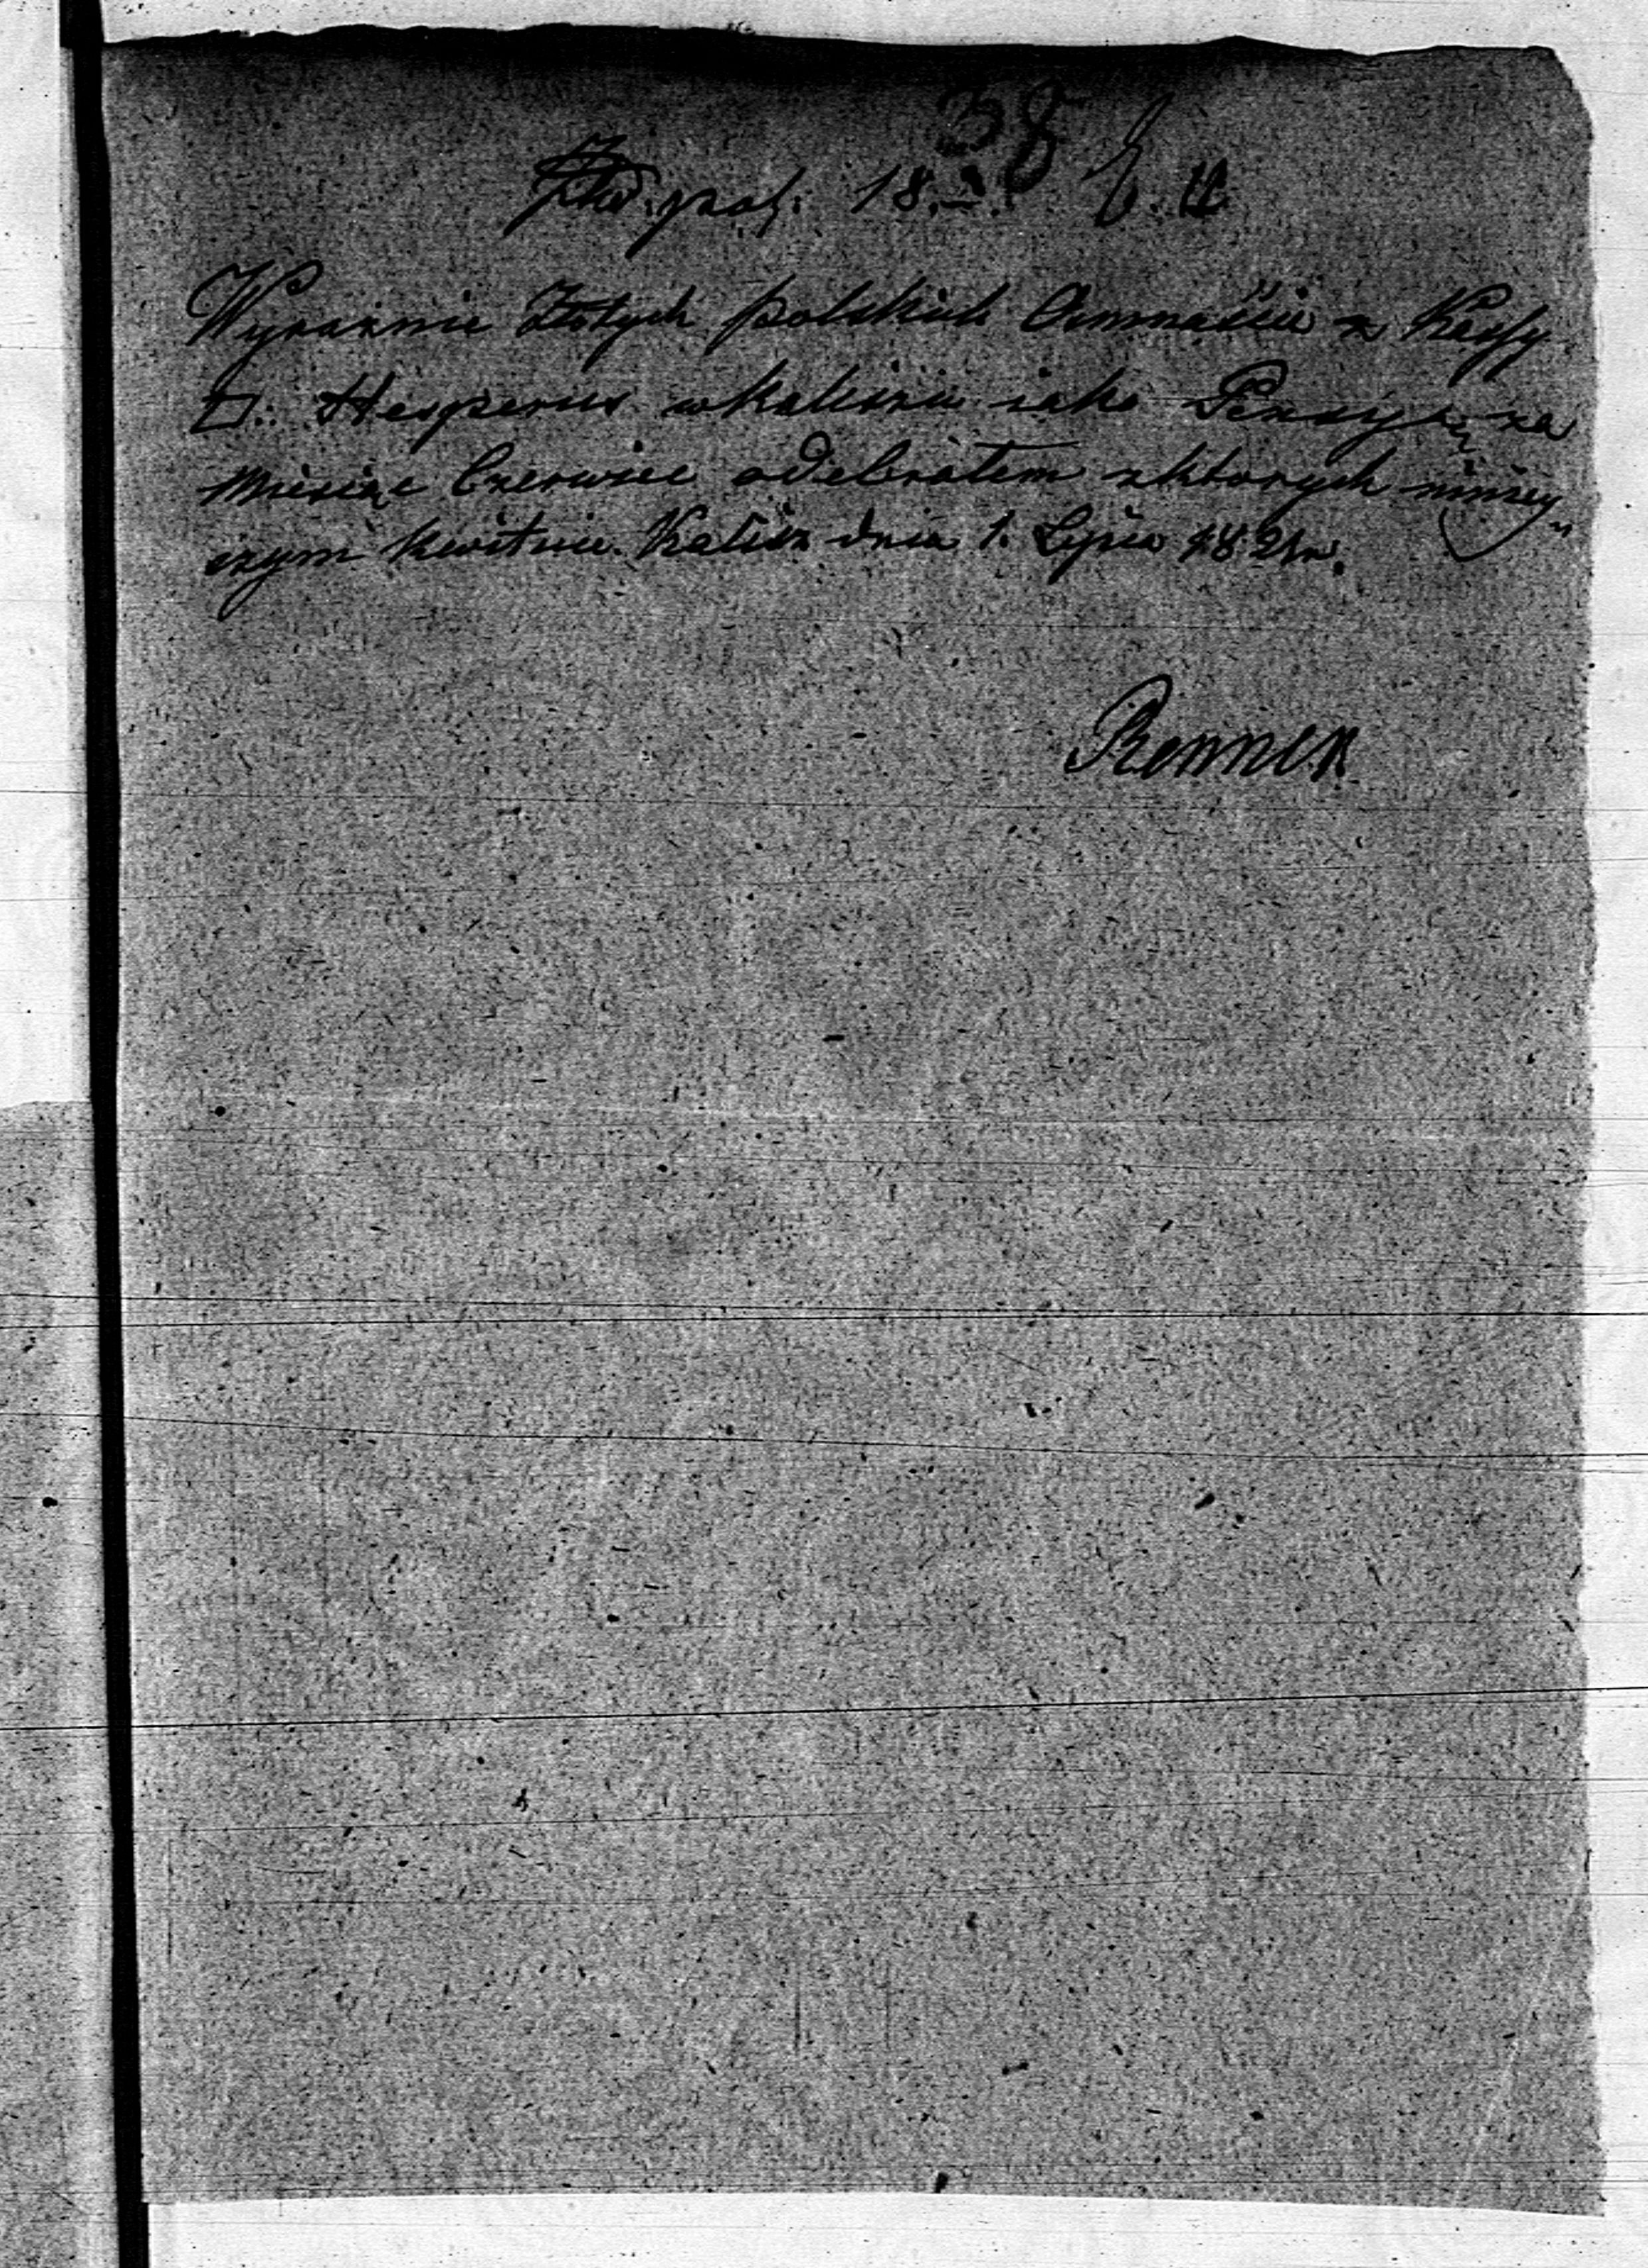 38
Złw. pol: 18.
Wyraznie Złotych polskich Osmnaście z Kassy
□: Hesperus w Kaliszu iako Pensyą za
Miesiąc Czerwiec odebrałem z ktorych niniey„
szym kwituie. Kalisz dnia 1. Lipca 1821 r.
Renner.